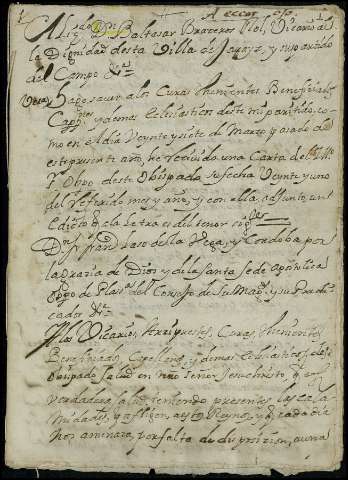 El Liz.do Dn Baltasar Brazeros Riol, Vicario de
la Dignidad desta Villa de y su partido
del Campo
Hago saver a los Curas thenientes Beneficiados
Capp.nes y demas eclesiasticos deste mi partido, co
mo en el dia Veynte y siete de Marzo pasado de
este presente año, he recivido una Carta del Ill.mo
S.r Obpo deste Obispado, su fecha Veynte y uno
del referido mes y año, y con ella adjunto un
Edicto q. a la letra es del tenor sig.te
Dn fr fran.co laso de la Vega, y Cordoba por
la Grazia de Dios y de la Santa sede Apostolica
Obpo de Plas.a del Consejo de su Mag.d y su Predi
cador &.a
A los Vicarios, Arziprestes, Curas, thenientes,
Beneficiados, Capellanes, y demas eclesiasticos deste
Obispado salud en nro señor Jesuchristo, q. es la
verdadera salud, teniendo presentes las cala
midades, q. afligen a estos Reynos, y q. cada dia
nos amenaza, por falta de